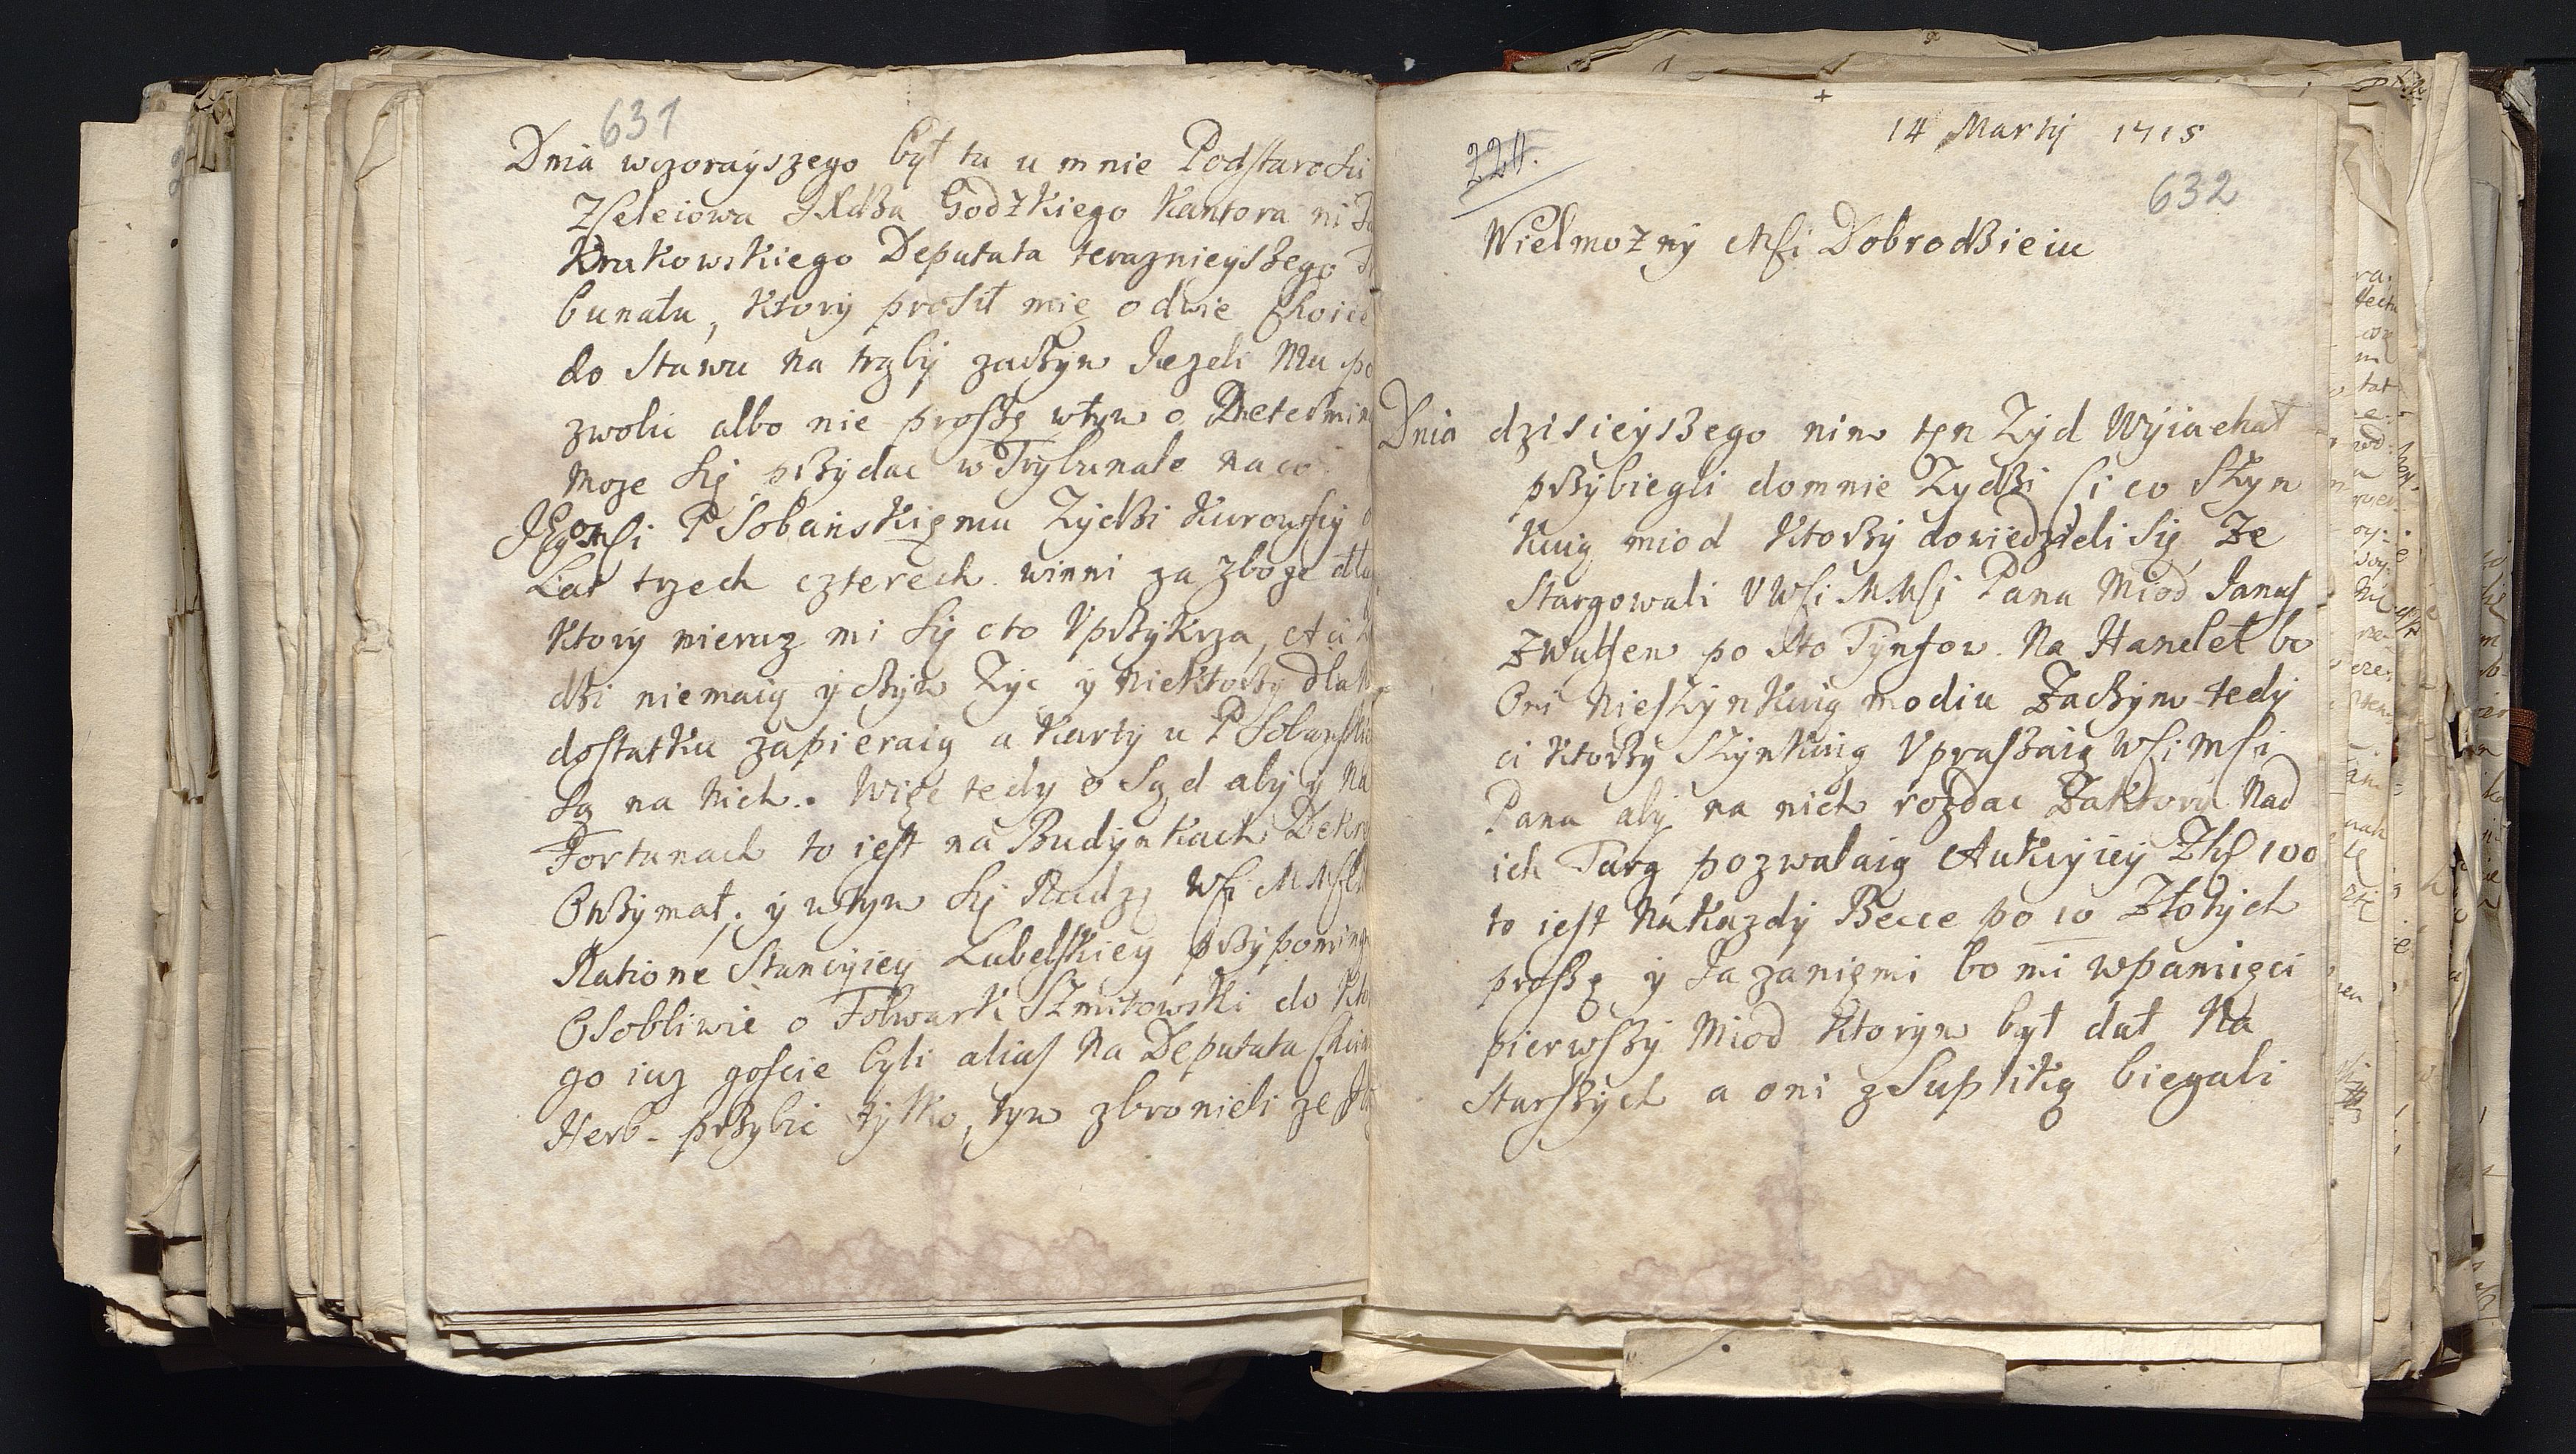 631
Dnia wczorayszego był tu u mnie Podstarosci
Zseleiowa Godzkiego Kantora ni
Krakowskiego Deputata teraznieyszego
bunału, Ktory prosił mię o dwie
do Stawu na trzby zaczym Iezeli Mu po
zwolic albo nie proszę wtym o Determin
Moze Się przydac w Trybunale na co
P Sobanskięmu Zydzi Kurowscy
Lat trzech czterech winni za zboze dla
Ktory nieraz mi Się oto Vprzykrza, A
dzi niemaią y czym Zyc y Niektorzy dla
dostatku zapieraią a Karty u P Sobanski
Są na Nich. Więc tedy o Sąd aby y Na
Fortunach to iest na Budynkach Dekre
Otrzymał; y wtym Się Radzę Wsi M
Ratione Stancyiey Lubelskiey przypomin
Osobliwie o Folwark do Kto
go iuz goscie byli alias Na Deputata
Herb przybic tylko, tym zbronieli ze
14 Martij 1715
224.
632
Wielmozny Msi Dobrodzieiu
Dnia dzisieyszego nim ten Zyd Wyiachał
przybiegli domnie Zydzi Ci co Szyn
Kuią miod Ktorzy dowiedzieli Się Ze
Stargowali V Wsi M Msi Pana Miod Ianas
Zwulfem po Sto Tynfow. Na Handel bo
Oni Nieszynkuią modiu Zaczym tedy
ci Ktorzy Szynkuią Vpraszaią Wsi M Si
Pana aby na nich rozdac Zaktory Nad
ich Targ pozwalaią Aukcyiey Zhs 100
to iest Nakazdy Becce po 10 Złotych
proszę y Ia zanięmi bo mi wpamięci
pierwszy Miod Ktorym był dał Na
Starszych a oni z Supliką biegali